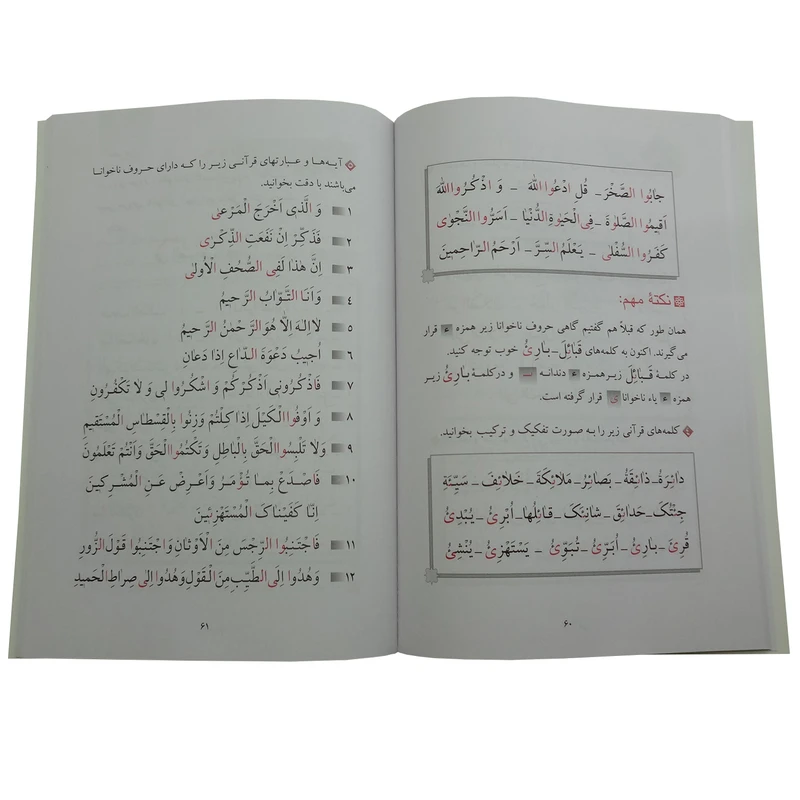 جابُوا الصَّخْرَ ـ قُلِ ادْعُوا اللّٰهَ ـ وَ اذْكُرُوا اللّٰهَ
اَقیمُوا الصَّلوٰةَ ـ فِی الْحَیوٰةِ الدُّنْیا ـ اَسَرُّوا النَّجْوٰی
كَفَرُوا السُّفْلیٰ ـ یَعْلَمُ السِّرَّ ـ اَرْحَمُ الرّاحِمینَ
نكتهٔ مهم:
همان طور كه قبلاً هم گفتیم گاهی حروف ناخوانا زیر همزه ء قرار
می‌گیرند. اكنون به كلمه‌های قَبائِلَ ـ بارِئُ خوب توجه كنید.
در كلمهٔ قَبائِلَ زیر همزه ء دندانه ـ و در كلمهٔ بارِئُ زیر
همزه ء یاء ناخوانا ی قرار گرفته است.
كلمه‌های قرآنی زیر را به صورت تفكیک و تركیب بخوانید.
دائِرَةُ ـ ذائِقَةُ ـ بَصائِرُ ـ مَلائِكَةَ ـ خَلائِفَ ـ سَیِّئَةِ
جِئْتُکَ ـ حَدائِقَ ـ شانِئَکَ ـ قائِلُها ـ اُبْرِئُ ـ یُبْدِئُ
قُرِئَ ـ بارِئُ ـ اُبَرِّئُ ـ تُبَوِّئُ ـ یَسْتَهْزِئُ ـ یُنْشِئُ
۶۰
آیه‌ها و عبارتهای قرآنی زیر را كه دارای حروف ناخوانا
می‌باشند با دقت بخوانید.
۱ وَ الَّذی اَخْرَجَ الْمَرْعیٰ
۲ فَذَكِّرْ اِنْ نَفَعَتِ الذِّكْرٰی
۳ اِنَّ هٰذا لَفِی الصُّحُفِ الْاُولیٰ
۴ وَ اَنَا التَّوّابُ الرَّحیمُ
۵ لا اِلٰهَ اِلّا هُوَ الرَّحْمٰنُ الرَّحیمُ
۶ اُجیبُ دَعْوَةَ الدّاعِ اِذا دَعانِ
۷ فَاذْكُرُونی اَذْكُرْكُمْ وَ اشْكُرُوا لی وَ لا تَكْفُرُونِ
۸ وَ اَوْفُوا الْكَیْلَ اِذا كِلْتُمْ وَ زِنُوا بِالْقِسْطاسِ الْمُسْتَقیمِ
۹ وَ لا تَلْبِسُوا الْحَقَّ بِالْباطِلِ وَ تَكْتُمُوا الْحَقَّ وَ اَنْتُمْ تَعْلَمُونَ
۱۰ فَاصْدَعْ بِما تُؤْمَرُ وَ اَعْرِضْ عَنِ الْمُشْرِكینَ
اِنّا كَفَیْناکَ الْمُسْتَهْزِئینَ
۱۱ فَاجْتَنِبُوا الرِّجْسَ مِنَ الْاَوْثانِ وَ اجْتَنِبُوا قَوْلَ الزُّورِ
۱۲ وَ هُدُوا اِلَی الطَّیِّبِ مِنَ الْقَوْلِ وَ هُدُوا اِلیٰ صِراطِ الْحَمیدِ
۶۱